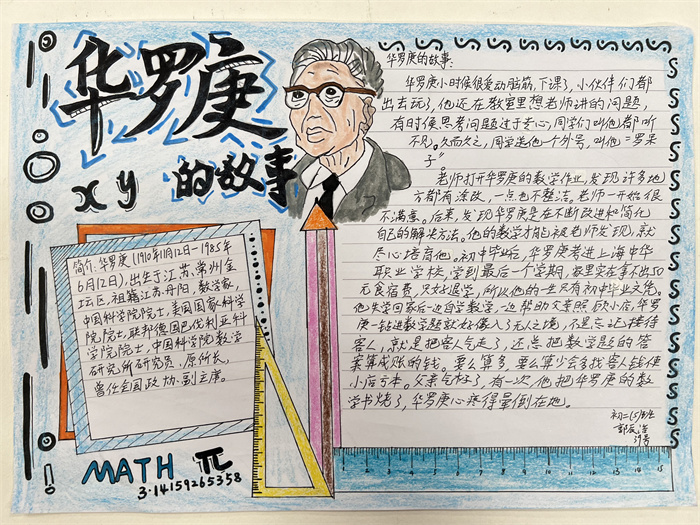 华罗庚
x y 的故事
简介: 华罗庚 (1910年11月12日-1985年
6月12日), 出生于江苏, 常州金
坛区, 祖籍江苏丹阳, 数学家,
中国科学院院士, 美国国家科学
院院士, 联邦德国巴伐利亚科
学院院士, 中国科学院数学
研究所研究员、原所长,
曾任全国政协、副主席。
MATH π
3.14159265358
华罗庚的故事:
华罗庚小时候很爱动脑筋, 下课了, 小伙伴们都
出去玩了, 他还在教室里想老师讲的问题,
有时候思考问题过于专心, 同学们叫他都听
不见。久而久之, 同学送他一个外号, 叫他"罗呆
子"。
老师打开华罗庚的数学作业, 发现许多地
方都有涂改, 一点也不整洁。老师一开始很
不满意。后来, 发现华罗庚是在不断改进和简化
自己的解决方法。他的数学才能被老师发现, 就
尽心培育他。初中毕业后, 华罗庚考进上海中华
职业学校, 学到最后一个学期, 家里实在拿不出50
元食宿费, 只好退学, 所以他的一生只有初中毕业文凭。
他失学回家后一边自学数学, 一边帮助父亲照顾小店, 华罗
庚一钻进数学题就好像入了无人之境, 不是忘记接待
客人, 就是把客人气走了, 还总把数学题的答
案算成账的钱。要么算多, 要么算少会多找客人钱使
小店亏本。父亲气坏了, 有一次, 他把华罗庚的数
学书烧了, 华罗庚心疼得晕倒在地。
初二(5)班
39号
1 2 3 4 5 6 7 8 9 10 11 12 13 14 15